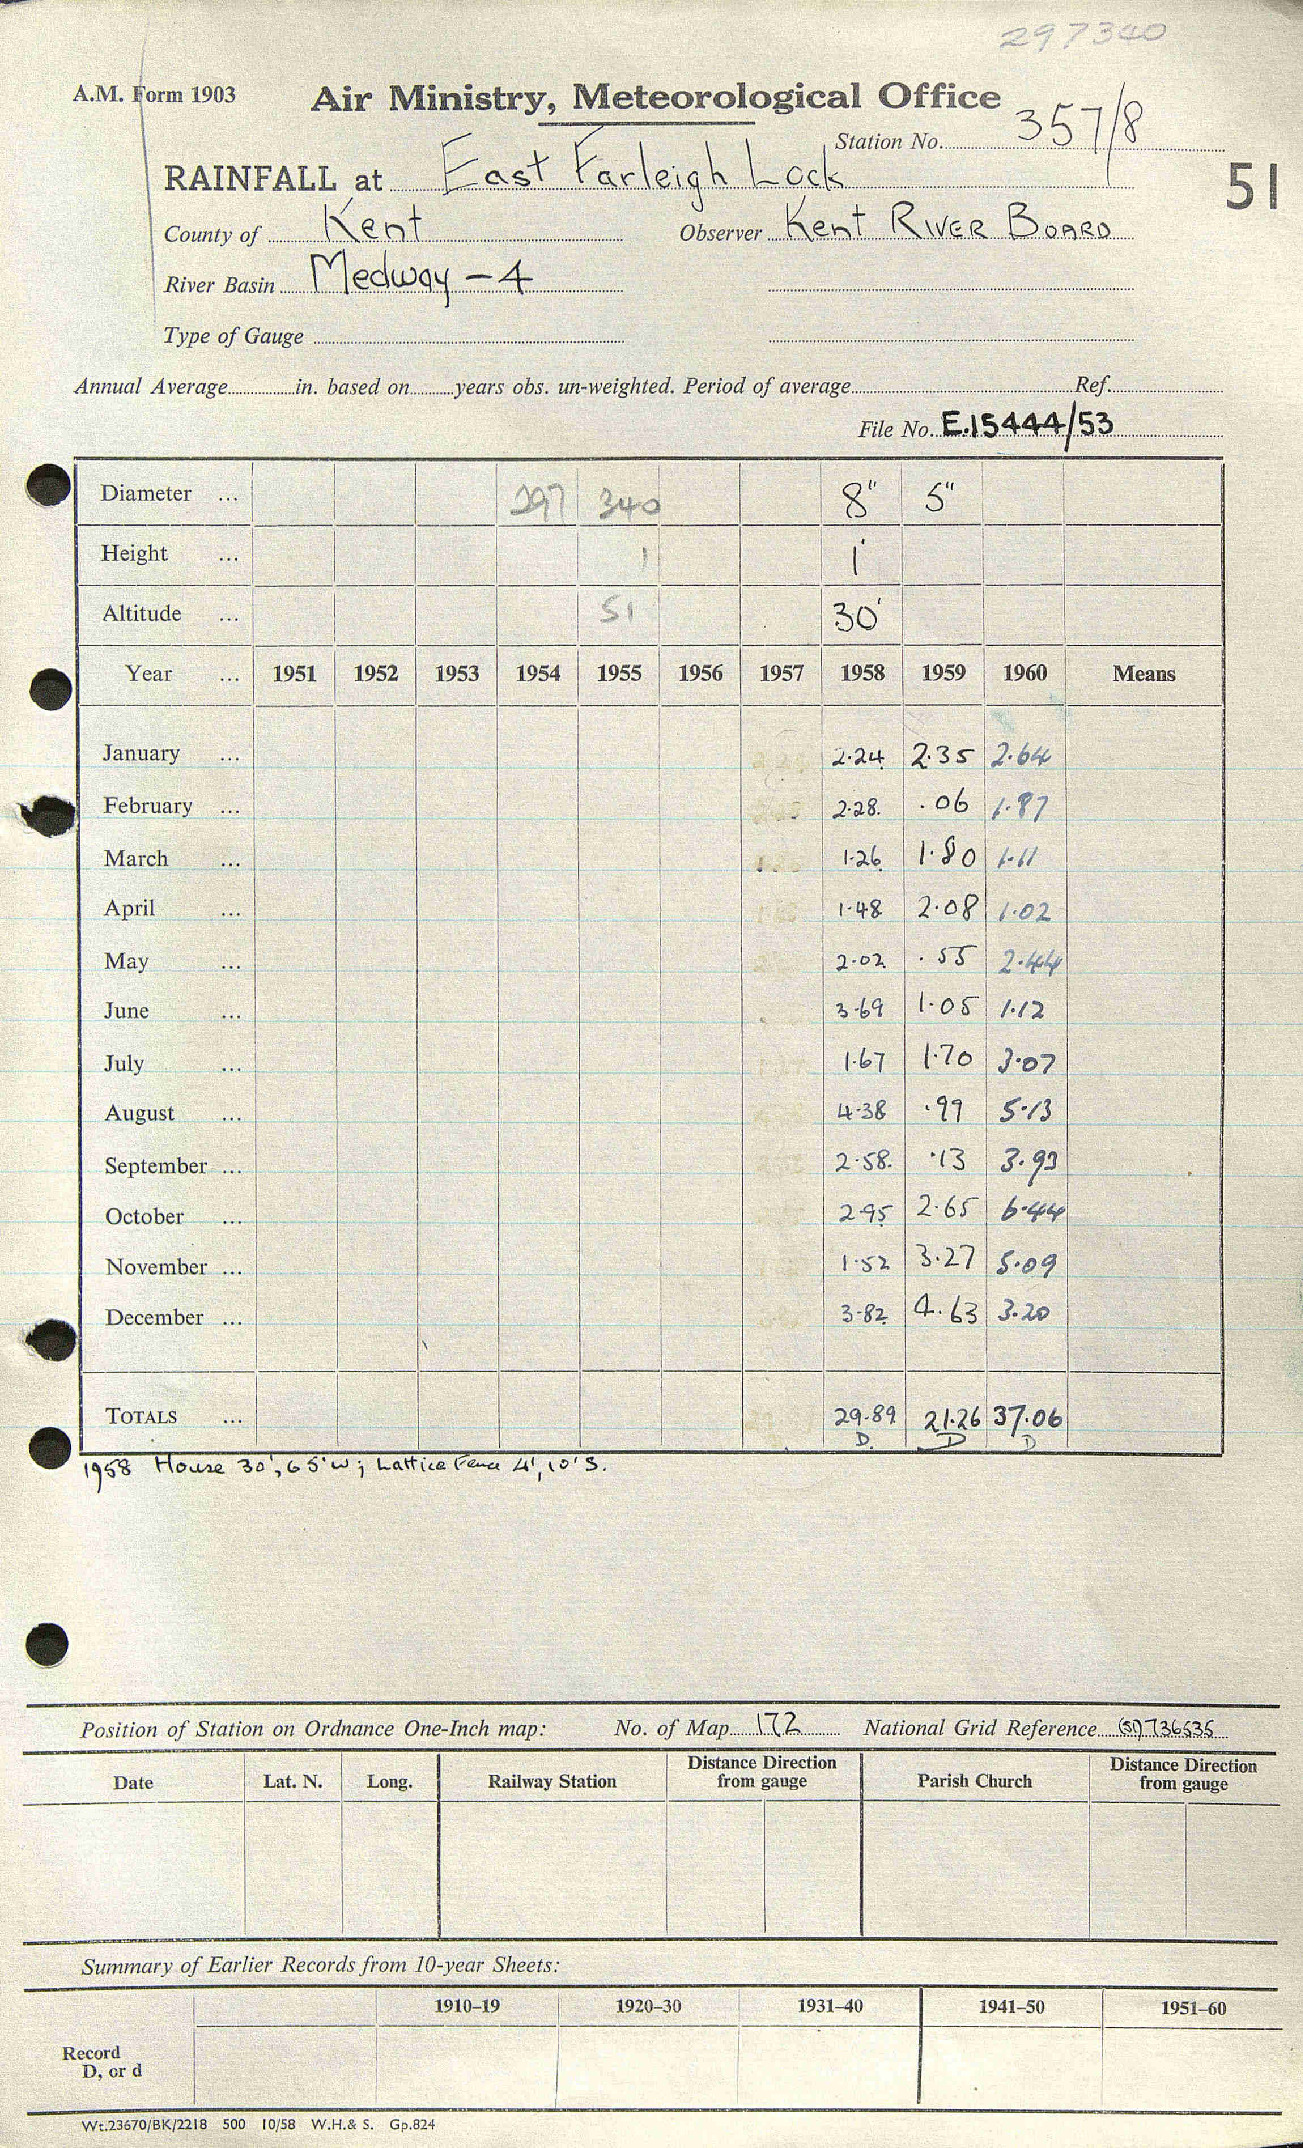 297340
A.M. Form 1903 Air Ministry, Meteorological Office
Station No. 357/8
RAINFALL at East Farleigh Lock
51
County of Kent Observer Kent River Board
River Basin Medway - 4
Type of Gauge
Annual Average in. based on years obs. un-weighted. Period of average Ref.
File No. E.15444/53
Diameter ... 297 340 8" 5"
Height ... 1 1'
Altitude ... 51 30'
Year ... 1951 1952 1953 1954 1955 1956 1957 1958 1959 1960 Means
January ... 2.24 2.35 2.64
February ... 2.28. .06 1.87
March ... 1.26 1.80 1.11
April ... 1.48 2.08 1.02
May ... 2.02 .55 2.44
June ... 3.69 1.05 1.12
July ... 1.67 1.70 3.07
August ... 4.38 .99 5.13
September ... 2.58. .13 3.93
October ... 2.95 2.65 6.44
November ... 1.52 3.27 5.09
December ... 3.82 4.63 3.20
TOTALS ... 29.89 21.26 37.06
D. D D
1958 House 30', 65'W; Lattice Fence 4', 10'S.
Position of Station on Ordnance One-Inch map: No. of Map 172 National Grid Reference (51)736535
Date Lat. N. Long. Railway Station Distance Direction from gauge Parish Church Distance Direction from gauge
Summary of Earlier Records from 10-year Sheets:
1910–19 1920–30 1931–40 1941–50 1951–60
Record
D, or d
Wt.23670/BK/2218 500 10/58 W.H.& S. Gp.824